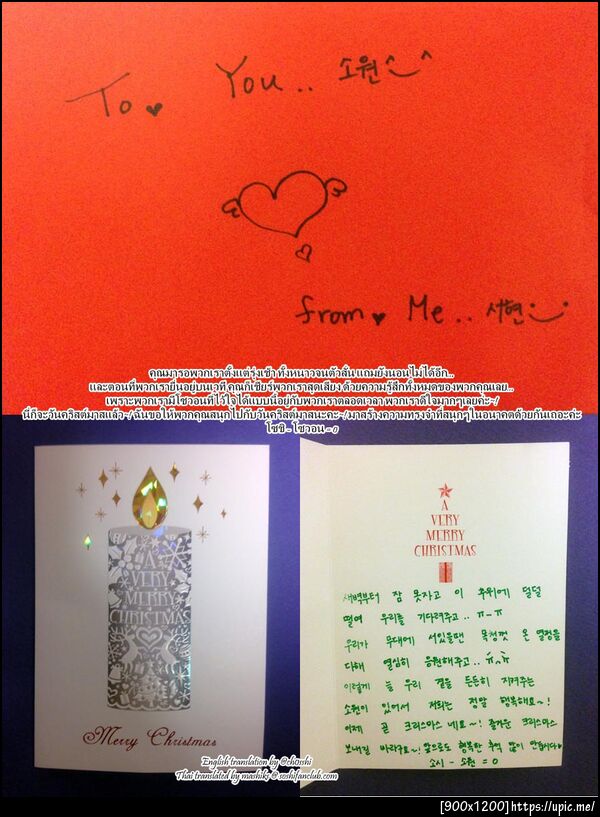 To♥ You.. 소원^‿^
from♥ Me.. 서현
คุณมารอพวกเราตั้งแต่รุ่งเช้า ทั้งหนาวจนตัวสั่น แถมยังนอนไม่ได้อีก...
และตอนที่พวกเรายืนอยู่บนเวที คุณก็เชียร์พวกเราสุดเสียง ด้วยความรู้สึกทั้งหมดของพวกคุณเลย...
เพราะพวกเรามีโซวอนที่ไว้ใจได้แบบนี้อยู่กับพวกเราตลอดเวลา พวกเราดีใจมากๆเลยค่ะ~!
นี่ก็จะวันคริสต์มาสแล้ว~! ฉันขอให้พวกคุณสนุกไปกับวันคริสต์มาสนะคะ~! มาสร้างความทรงจำที่สนุกๆในอนาคตด้วยกันเถอะค่ะ
โซชิ - โซวอน = 0
A
VERY
MERRY
CHRISTMAS
Merry Christmas
A
VERY
MERRY
CHRISTMAS
새벽부터 잠 못자고 이 추위에 덜덜
떨며 우리를 기다려주고.. ㅠ_ㅠ
우리가 무대에 서있을땐 목청껏 온 열정을
다해 열심히 응원해주고.. ㅠ^ㅠ
이렇게 늘 우리 곁을 든든히 지켜주는
소원이 있어서 저희는 정말 행복해요~!
이제 곧 크리스마스 네요~! 즐거운 크리스마스
보내길 바라구요~! 앞으로도 행복한 추억 많이 만듭시다♥
소시 - 소원 = 0
English translation by @ch0sshi
Thai translated by mashiki @ soshifanclub.com
[900x1200]https://upic.me/